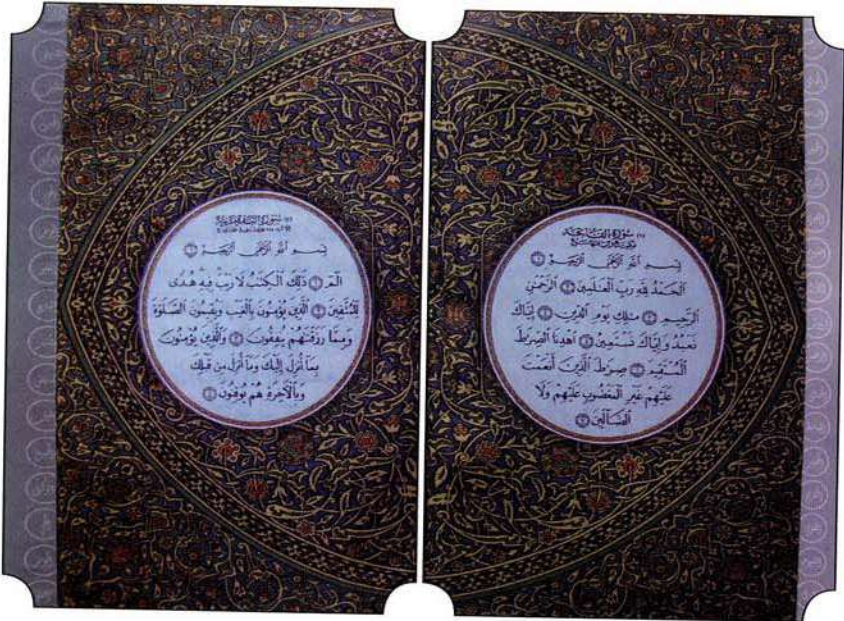 سُورَةُ الفَاتِحَةِ
بِسْمِ ٱللَّهِ ٱلرَّحْمَٰنِ ٱلرَّحِيمِ ①
ٱلْحَمْدُ لِلَّهِ رَبِّ ٱلْعَٰلَمِينَ ② ٱلرَّحْمَٰنِ
ٱلرَّحِيمِ ③ مَٰلِكِ يَوْمِ ٱلدِّينِ ④ إِيَّاكَ
نَعْبُدُ وَإِيَّاكَ نَسْتَعِينُ ⑤ ٱهْدِنَا ٱلصِّرَٰطَ
ٱلْمُسْتَقِيمَ ⑥ صِرَٰطَ ٱلَّذِينَ أَنْعَمْتَ
عَلَيْهِمْ غَيْرِ ٱلْمَغْضُوبِ عَلَيْهِمْ وَلَا
ٱلضَّآلِّينَ ⑦
سُورَةُ البَقَرَةِ مَدَنِيَّة
بِسْمِ ٱللَّهِ ٱلرَّحْمَٰنِ ٱلرَّحِيمِ
الٓمٓ ① ذَٰلِكَ ٱلْكِتَٰبُ لَا رَيْبَ فِيهِ هُدًى
لِّلْمُتَّقِينَ ② ٱلَّذِينَ يُؤْمِنُونَ بِٱلْغَيْبِ وَيُقِيمُونَ ٱلصَّلَوٰةَ
وَمِمَّا رَزَقْنَٰهُمْ يُنفِقُونَ ③ وَٱلَّذِينَ يُؤْمِنُونَ
بِمَآ أُنزِلَ إِلَيْكَ وَمَآ أُنزِلَ مِن قَبْلِكَ
وَبِٱلْءَاخِرَةِ هُمْ يُوقِنُونَ ④